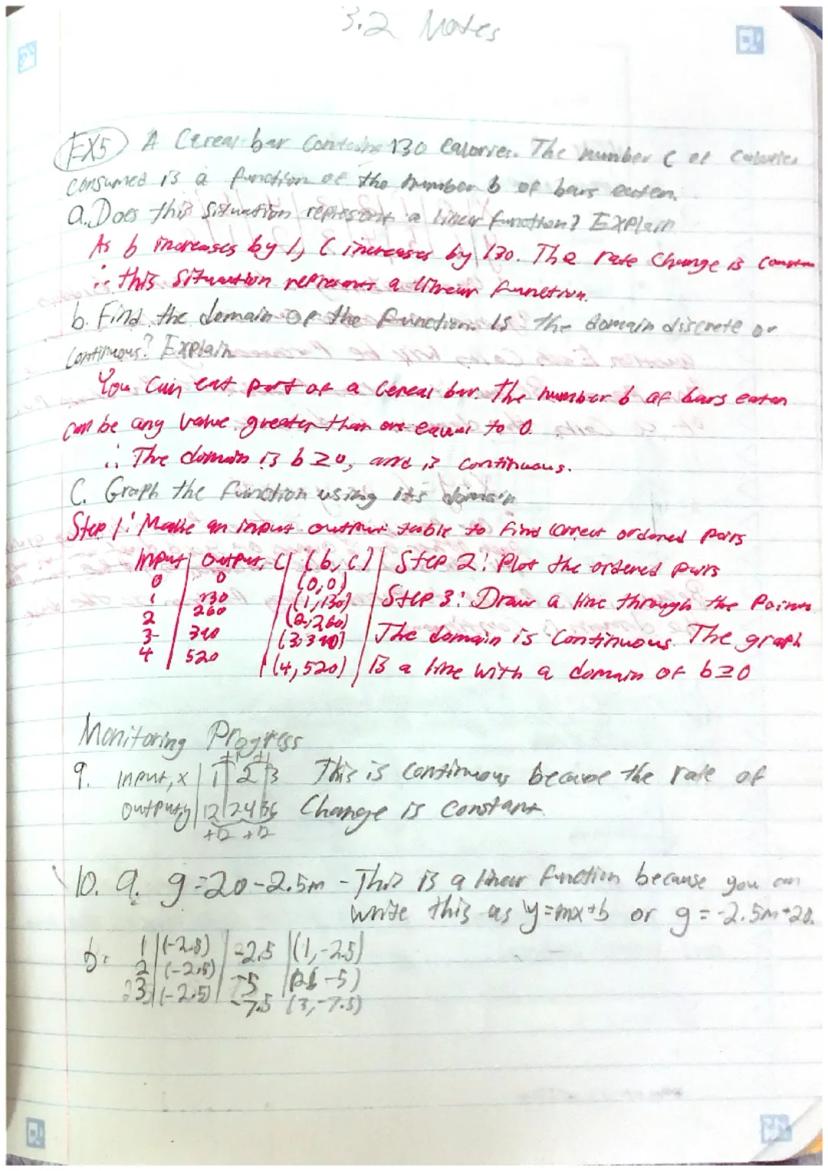 3.2 Notes
EX5 A Cereal bar contains 130 calories. The number C of calories
consumed is a function of the number b of bars eaten.
a. Does this situation represent a linear function? Explain
As b increases by 1, C increases by 130. The rate change is constan
∴ this situation represents a linear function.
b. Find the domain of the function. Is the domain discrete or
continuous? Explain
You can eat part of a cereal bar. The number b of bars eaten
can be any value greater than or equal to 0.
∴ The domain is b≥0, and is continuous.
C. Graph the function using its domain
Step 1: Make an input output table to find correct ordered pairs
Input | Output, C | (b, c) | Step 2: Plot the ordered pairs
0 | 0 | (0,0)
1 | 130 | (1,130) | Step 3: Draw a line through the Points
2 | 260 | (2,260)
3 | 390 | (3,390) | The domain is Continuous. The graph
4 | 520 | (4,520) | is a line with a domain of b≥0
Monitoring Progress
+1 +1
9. Input, x | 1 | 2 | 3 This is continuous because the rate of
Output, y | 12 | 24 | 36 Change is constant.
+12 +12
10. a. g=20-2.5m - This is a linear function because you can
write this as y=mx+b or g=-2.5m+20.
b. 1 | (-2.5) | -2.5 | (1,-2.5)
2 | (-2.5) | -5 | (2,-5)
3 | (-2.5) | -7.5 | (3,-7.5)